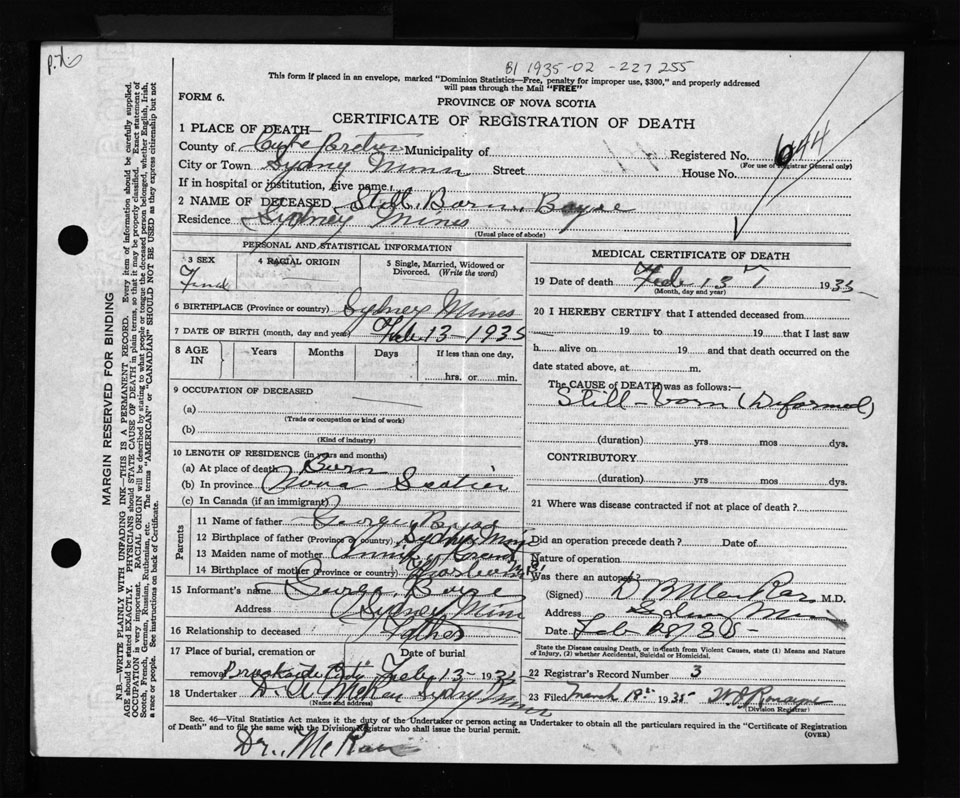 B1 1935-02-227255
This form if placed in an envelope, marked "Dominion Statistics—Free, penalty for improper use, $300," and properly addressed
will pass through the Mail "FREE"
FORM 6.
PROVINCE OF NOVA SCOTIA
CERTIFICATE OF REGISTRATION OF DEATH
1 PLACE OF DEATH—
County of Cape Breton Municipality of Registered No. 644
(For use of Registrar General only)
City or Town Sydney Mines Street House No.
If in hospital or institution, give name
2 NAME OF DECEASED Still Born Boyse
Residence Sydney Mines
(Usual place of abode)
PERSONAL AND STATISTICAL INFORMATION
3 SEX 4 RACIAL ORIGIN 5 Single, Married, Widowed or Divorced. (Write the word)
6 BIRTHPLACE (Province or country) Sydney Mines
7 DATE OF BIRTH (month, day and year) Feb 13-1935
8 AGE IN Years Months Days If less than one day,
hrs. or min.
9 OCCUPATION OF DECEASED
(a)
(Trade or occupation or kind of work)
(b)
(Kind of industry)
10 LENGTH OF RESIDENCE (in years and months)
(a) At place of death Born
(b) In province Nova Scotia
(c) In Canada (if an immigrant)
Parents
11 Name of father George
12 Birthplace of father (Province or country) Sydney Mines
13 Maiden name of mother
14 Birthplace of mother (Province or country)
15 Informant's name George Boyse
Address Sydney Mines
16 Relationship to deceased Father
17 Place of burial, cremation or removal Brookside Date of burial Feb 13-1935
18 Undertaker Sydney Mines
(Name and address)
MEDICAL CERTIFICATE OF DEATH
19 Date of death Feb 13 1935
(Month, day and year)
20 I HEREBY CERTIFY that I attended deceased from
19 to 19 that I last saw
h alive on 19 and that death occurred on the
date stated above, at m.
The CAUSE OF DEATH was as follows:—
Still-born (Deformed)
(duration) yrs mos dys.
CONTRIBUTORY
(duration) yrs mos dys.
21 Where was disease contracted if not at place of death?
Did an operation precede death? Date of
Nature of operation
Was there an autopsy?
(Signed) M.D.
Address Sydney Mines
Date Feb 28/35
State the Disease causing Death, or in death from Violent Causes, state (1) Means and Nature
of Injury, (2) whether Accidental, Suicidal or Homicidal.
22 Registrar's Record Number 3
23 Filed March 19th 1935
(Division Registrar)
Sec. 46—Vital Statistics Act makes it the duty of the Undertaker or person acting as Undertaker to obtain all the particulars required in the "Certificate of Registration
of Death" and to file the same with the Division Registrar who shall issue the burial permit. (OVER)
MARGIN RESERVED FOR BINDING
N.B.—WRITE PLAINLY WITH UNFADING INK—THIS IS A PERMANENT RECORD. Every item of information should be carefully supplied.
AGE should be stated EXACTLY. PHYSICIANS should STATE CAUSE OF DEATH in plain terms, so that it may be properly classified. Exact statement of
OCCUPATION is very important. RACIAL ORIGIN will be described by stating to what people or tongue the deceased person belonged, whether English, Irish,
Scotch, French, German, Russian, Ruthenian, etc. The terms "AMERICAN" or "CANADIAN" SHOULD NOT BE USED as they express citizenship but not
a race or people. See instructions on back of Certificate.